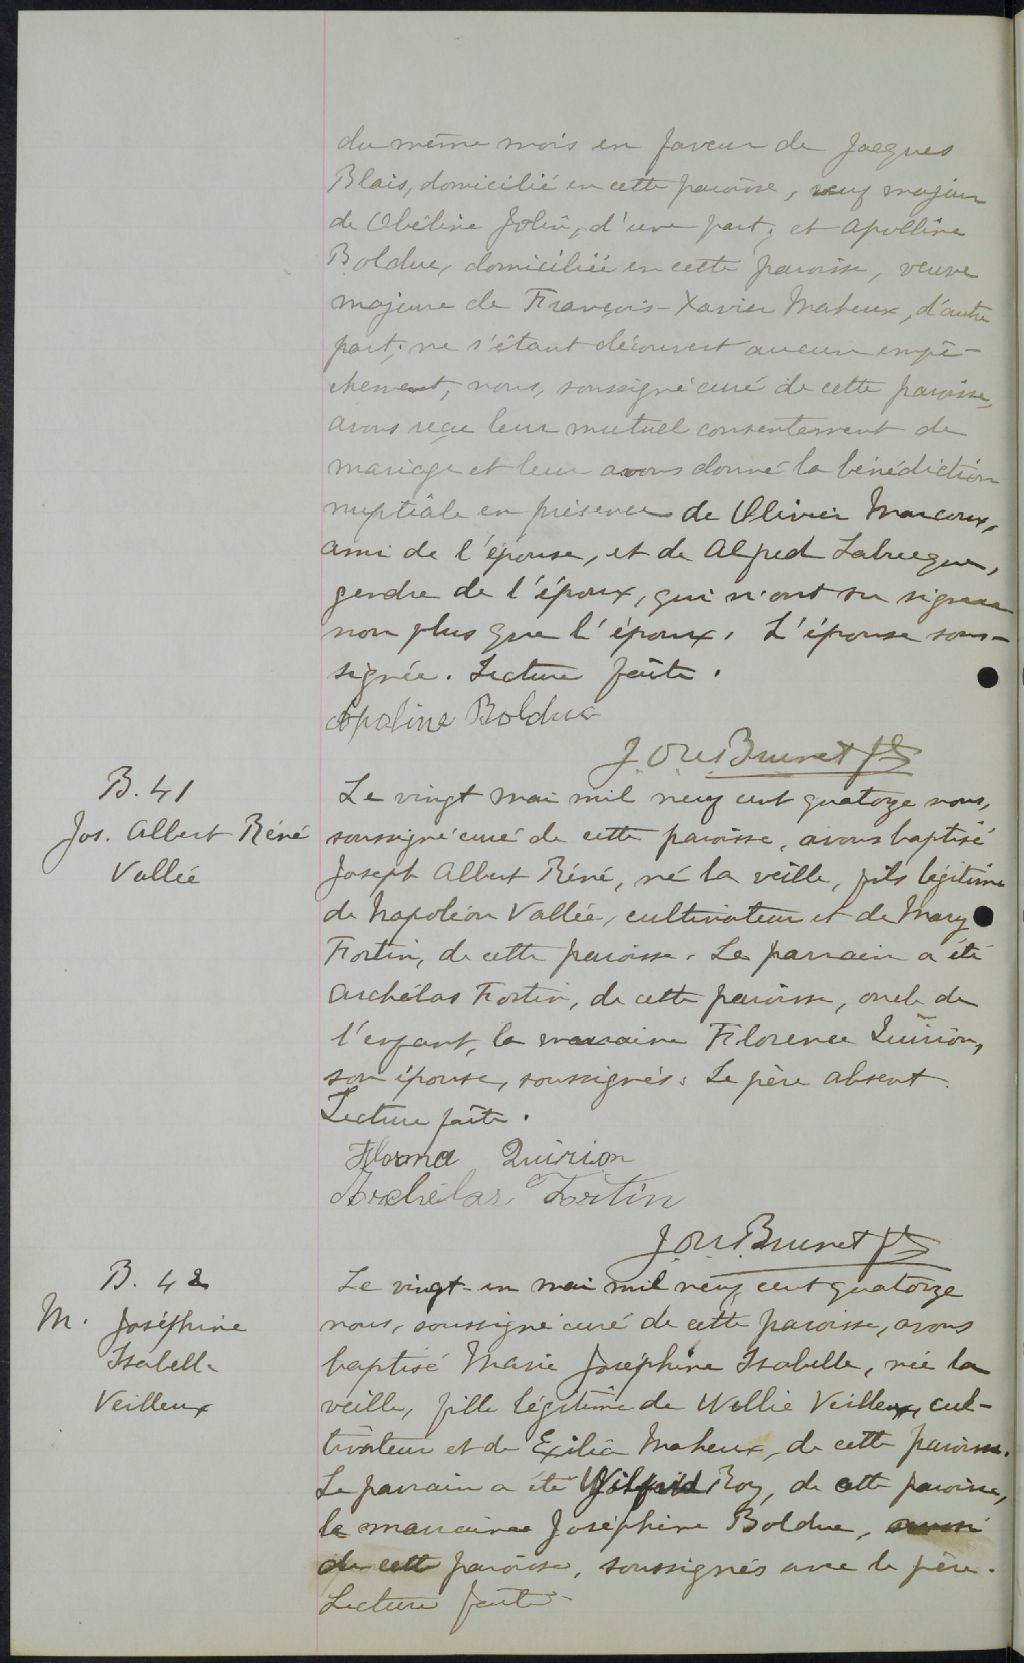 du même mois en faveur de Jacques
Blais, domicilié en cette paroisse, veuf majeur
de Obéline Jolin, d'une part; et Apolline
Bolduc, domiciliée en cette paroisse, veuve
majeure de François-Xavier Maheux, d'autre
part; ne s'étant découvert aucun empê-
chement, nous, soussigné curé de cette paroisse,
avons reçu leur mutuel consentement de
mariage et leur avons donné la bénédiction
nuptiale en présence de Olivier Marcoux,
ami de l'épouse, et de Alfred Labrecque,
gendre de l'époux, qui n'ont su signer
non plus que l'époux. L'épouse sous-
signée. Lecture faite.
Apoline Bolduc
J. Brunet Ptre
B. 41
Jos. Albert Réné
Vallée
Le vingt mai mil neuf cent quatorze nous,
soussigné curé de cette paroisse, avons baptisé
Joseph Albert Réné, né la veille, fils légitime
de Napoléon Vallée, cultivateur et de Mary
Fortin, de cette paroisse. Le parrain a été
Archélas Fortin, de cette paroisse, oncle de
l'enfant, la marraine Florence Quirion,
son épouse, soussignés. Le père absent.
Lecture faite.
Quirion
Archélas Fortin
J. Brunet Ptre
B. 42
M. Joséphine
Isabelle
Veilleux
Le vingt-un mai mil neuf cent quatorze
nous, soussigné curé de cette paroisse, avons
baptisé Marie Joséphine Isabelle, née la
veille, fille légitime de Willie Veilleux, cul-
tivateur et de Exilia Maheux, de cette paroisse.
Le parrain a été Wilfrid Roy, de cette paroisse,
la marraine Joséphine Bolduc, aussi
de cette paroisse, soussignés avec le père.
Lecture faite